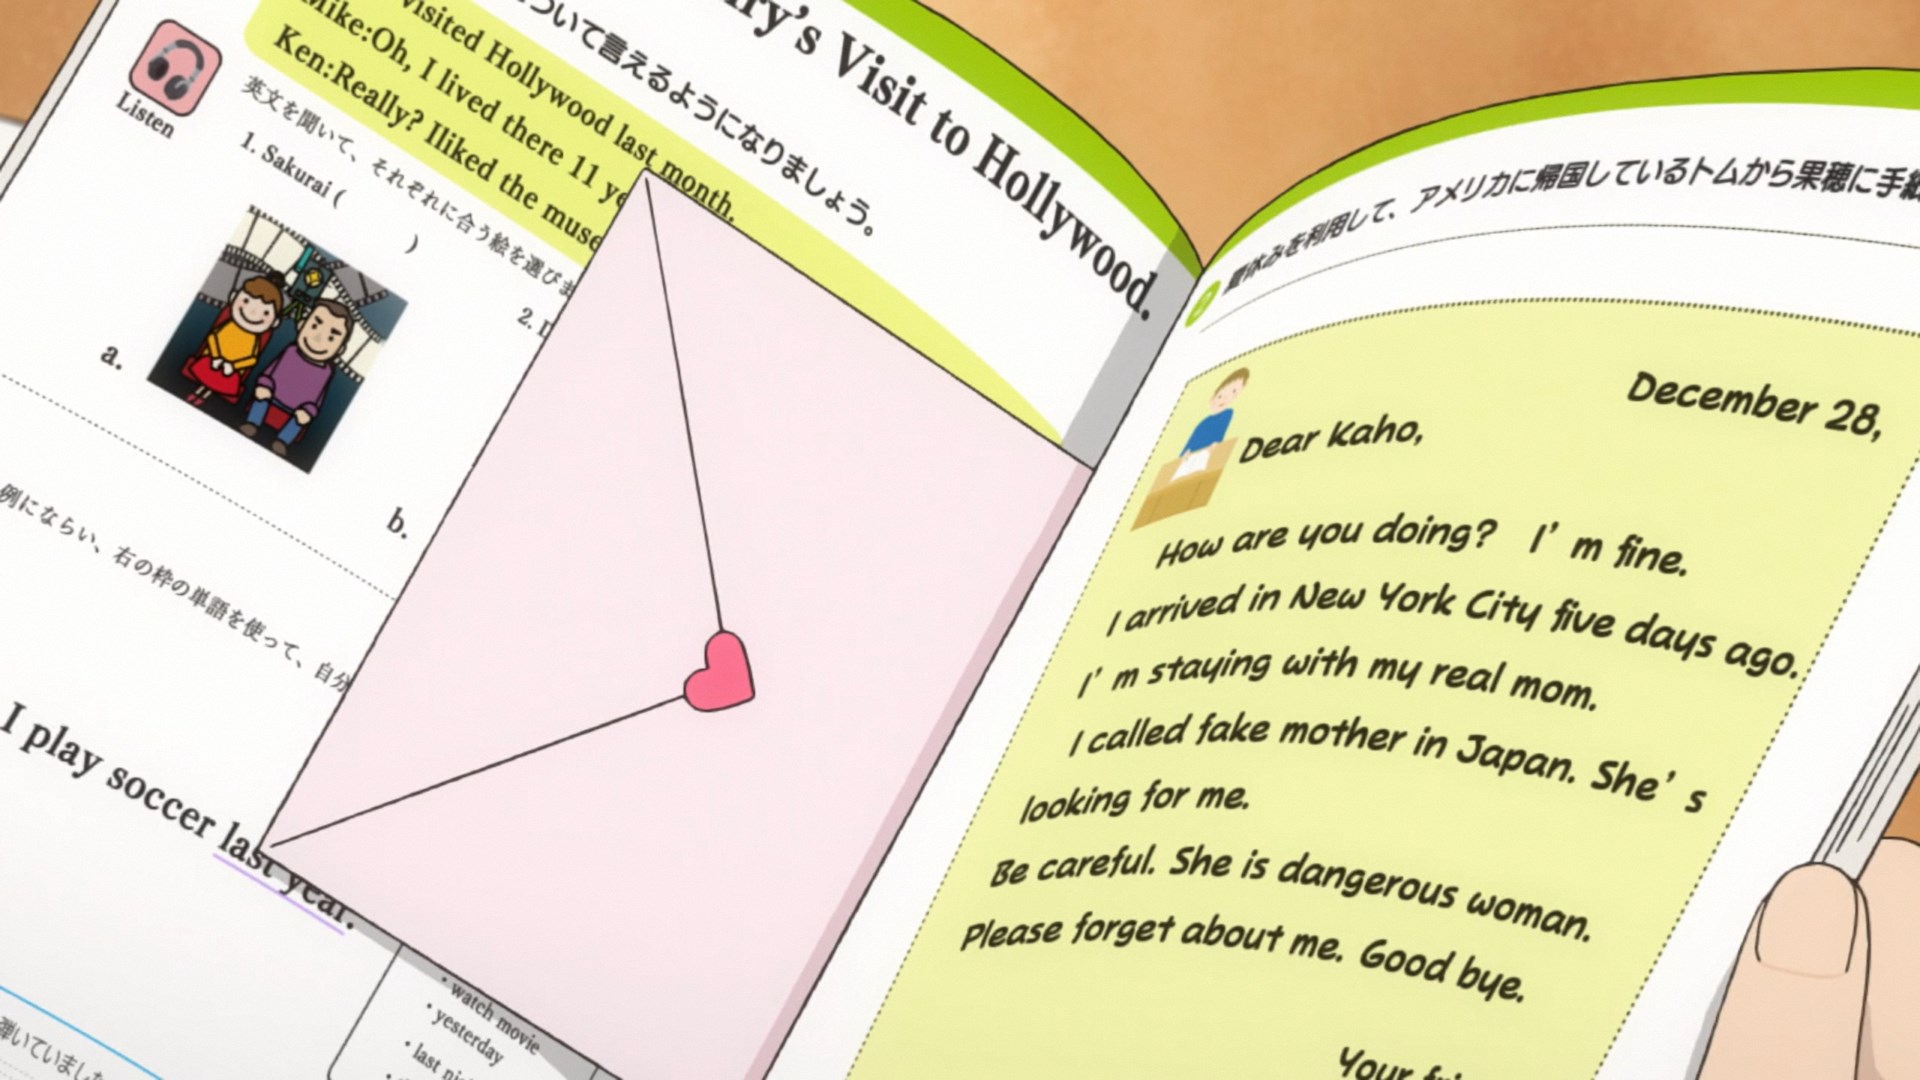 ry's Visit to Hollywood.
ついて言えるようになりましょう。
visited Hollywood last month.
Mike:Oh, I lived there 11 ye
Ken:Really? Iliked the muse
Listen
英文を聞いて、それぞれに合う絵を選びま
1. Sakurai ( )
2.
a.
b.
例にならい、右の枠の単語を使って、自分
I play soccer last year.
・watch movie
・yesterday
・last
弾いていました
夏休みを利用して、アメリカに帰国しているトムから果穂に手紙
December 28,
Dear Kaho,
How are you doing? I'm fine.
I arrived in New York City five days ago.
I'm staying with my real mom.
I called fake mother in Japan. She's
looking for me.
Be careful. She is dangerous woman.
Please forget about me. Good bye.
Your fri